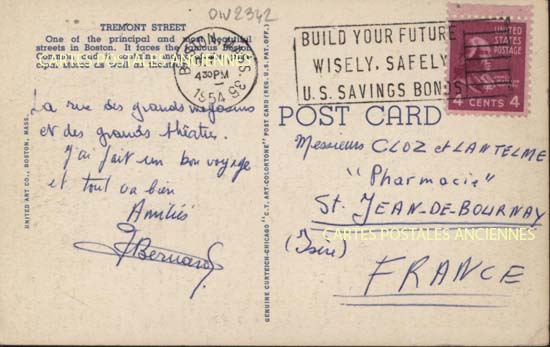 OW2342
TREMONT STREET
One of the principal and most beautiful
streets in Boston. It faces the famous Boston
Common and it contains many
open stores as well as theatres.
BOSTON MASS.
4 30 PM
1954
BUILD YOUR FUTURE
WISELY, SAFELY
U.S. SAVINGS BONDS
UNITED
STATES
POSTAGE
4 CENTS 4
CARTES POSTALES ANCIENNES
POST CARD
La rue des grands magasins
et des grands théâtres.
J'ai fait un bon voyage
et tout va bien
Amitiés
JBernard
UNITED ART CO., BOSTON, MASS.
GENUINE CURTEICH-CHICAGO "C.T. ART-COLORTONE" POST CARD (REG. U.S. PAT. OFF.)
Messieurs CLOZ et LANTELME
"Pharmacie"
St. JEAN-DE-BOURNAY
CARTES POSTALES ANCIENNES
(Isère)
FRANCE